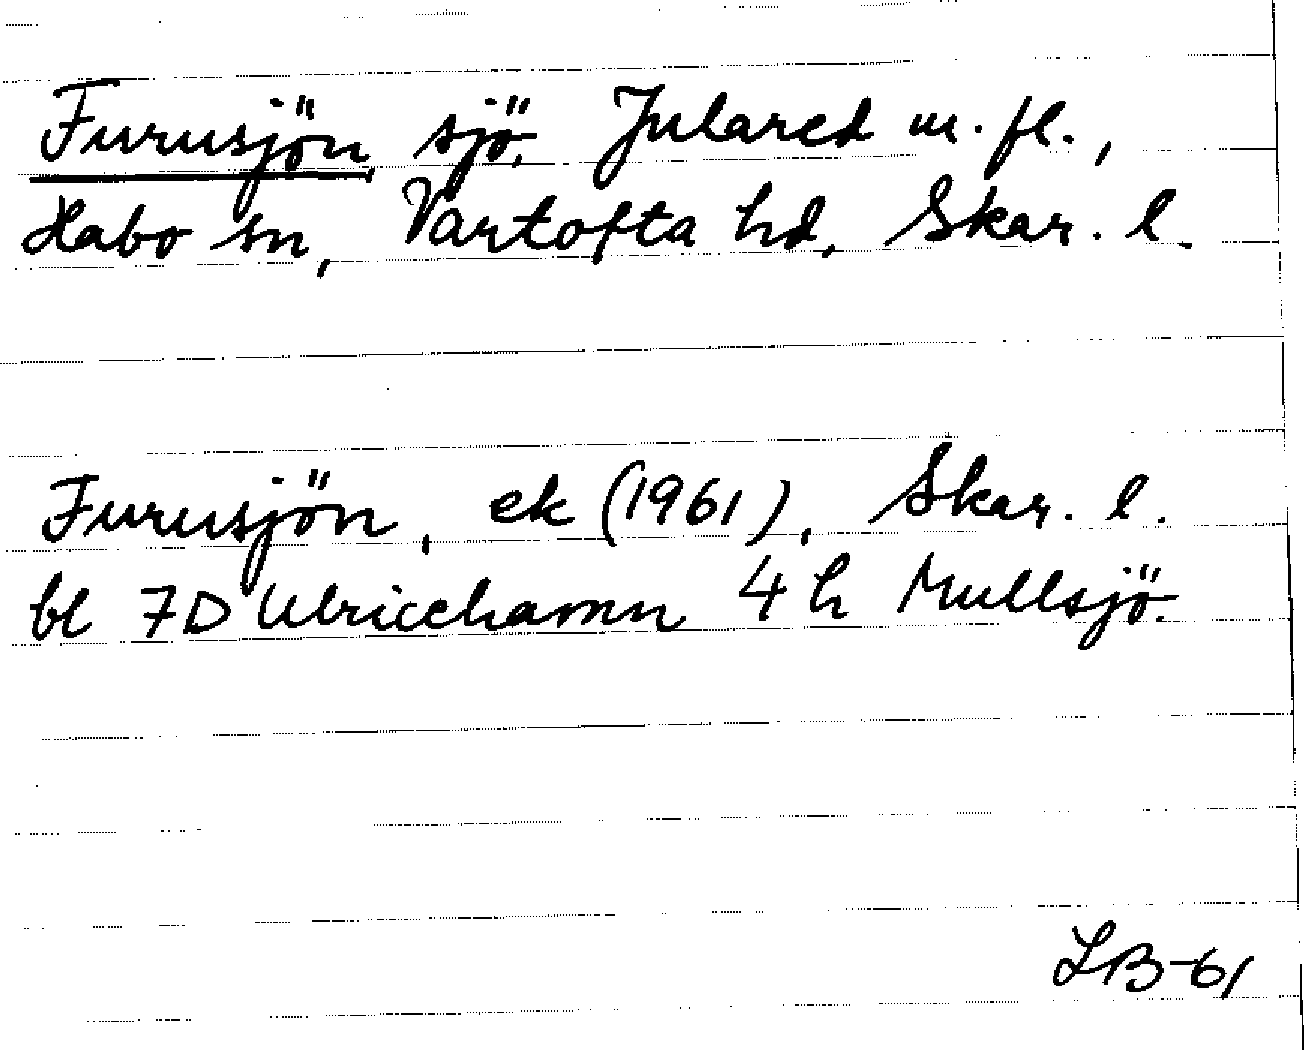 Furusjön, sjö, Julared m. fl.,
Habo sn, Vartofta hd, Skar. l.
Furusjön, ek (1961), Skar. l.
bl 7D Ulricehamn 4 h Mullsjö.
LB-61